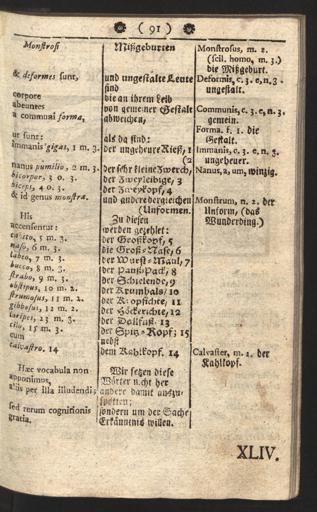 ( 91 )
Monstrosi
& deformes sunt,
corpore
abeuntes
a communi forma,
ut sunt:
immanis gigas, 1 m. 3.
nanus pumilio, 2 m. 3.
bicorpor, 3 o. 3.
biceps, 4 o. 3.
& id genus monstra.
His
accensentur:
capito, 5 m. 3.
naso, 6 m. 3.
labeo, 7 m. 3.
bucco, 8 m. 3.
strabo, 9 m. 3.
obstipus, 10 m. 2.
strumosus, 11 m. 2.
gibbosus, 12 m. 2.
loripes, 13 m. 3.
cilo, 15 m. 3.
cum
calvastro. 14
Hæc vocabula non
apponimus,
aliis per illa illudendi;
sed rerum cognitionis
gratia.
Mißgeburten
und ungestalte Leute
sind
die an ihrem Leib
von gemeiner Gestalt
abweichen,
als da sind:
der ungeheure Rieß, 1
(2
der sehr kleine Zwerch,
der Zweyleibige, 3
der Zweykopf, 4
und andere dergleichen
(Unformen.
Zu diesen
werden gezehlet:
der Großkopf, 5
die Groß-Nase, 6
der Wurst-Maul, 7
der PaußPack, 8
der Schielende, 9
der Krumhals, 10
der Kropfichte, 11
der Höckerichte, 12
der Dollfuß, 13
der Spitz-Kopf; 15
nebst
dem Kahlkopf. 14
Wir setzen diese
Wörter nicht her
andere damit auszu-
spotten;
sondern um der Sache
Erkäntnis willen.
Monstrosus, m. 2.
(scil. homo, m. 3.)
die Mißgeburt.
Deformis, c. 3. e, n. 3.
ungestalt.
Communis, c. 3. e, n. 3.
gemein.
Forma. f. 1. die
Gestalt.
Immanis, c. 3. e, n. 3.
ungeheuer.
Nanus, a, um, winzig.
Monstrum, n. 2. der
Unform, (das
Wunderding.)
Calvaster, m. 2. der
Kahlkopf.
XLIV.